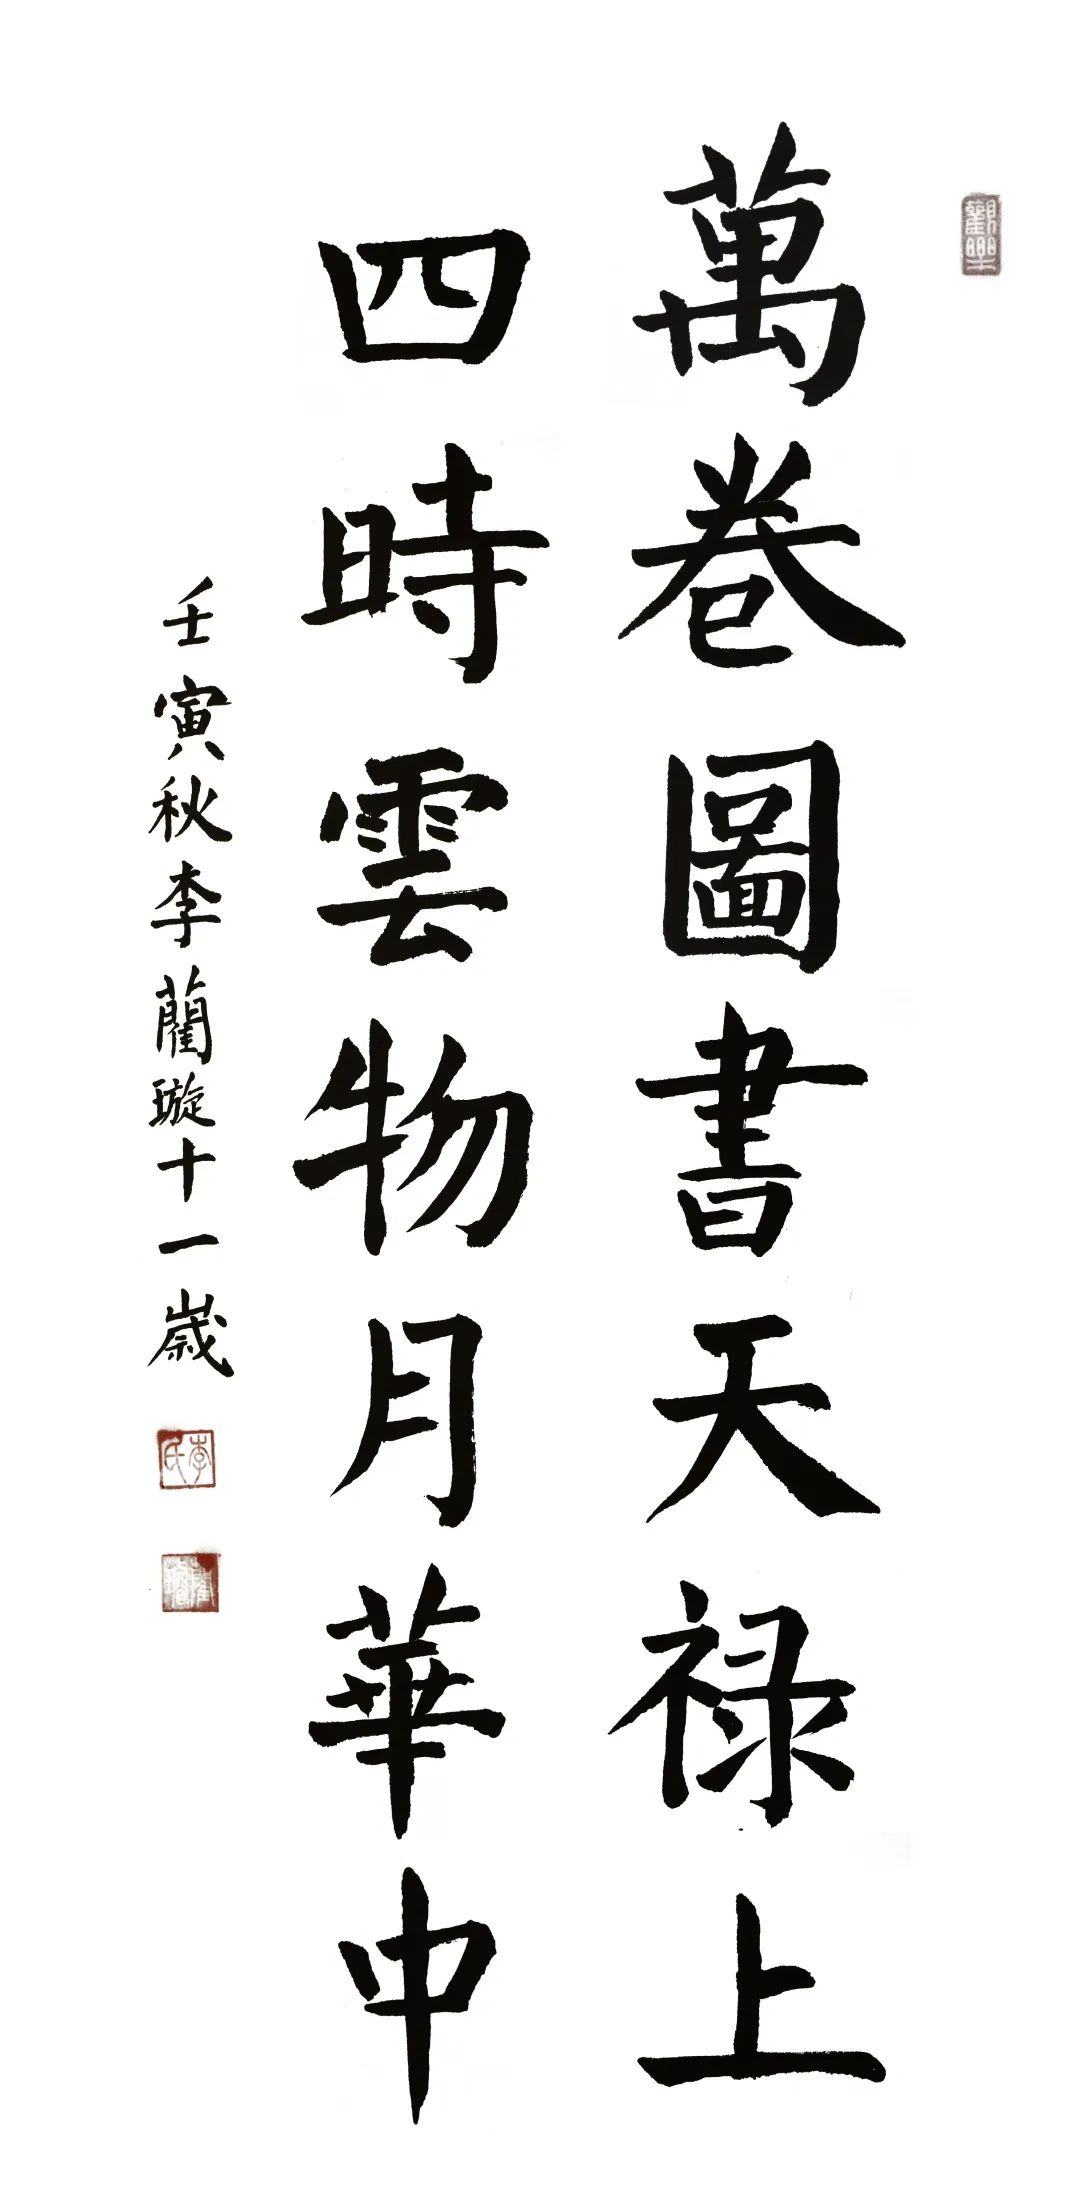 萬卷圖書天禄上
四時雲物月華中
壬寅秋李藺璇十一歲
李氏